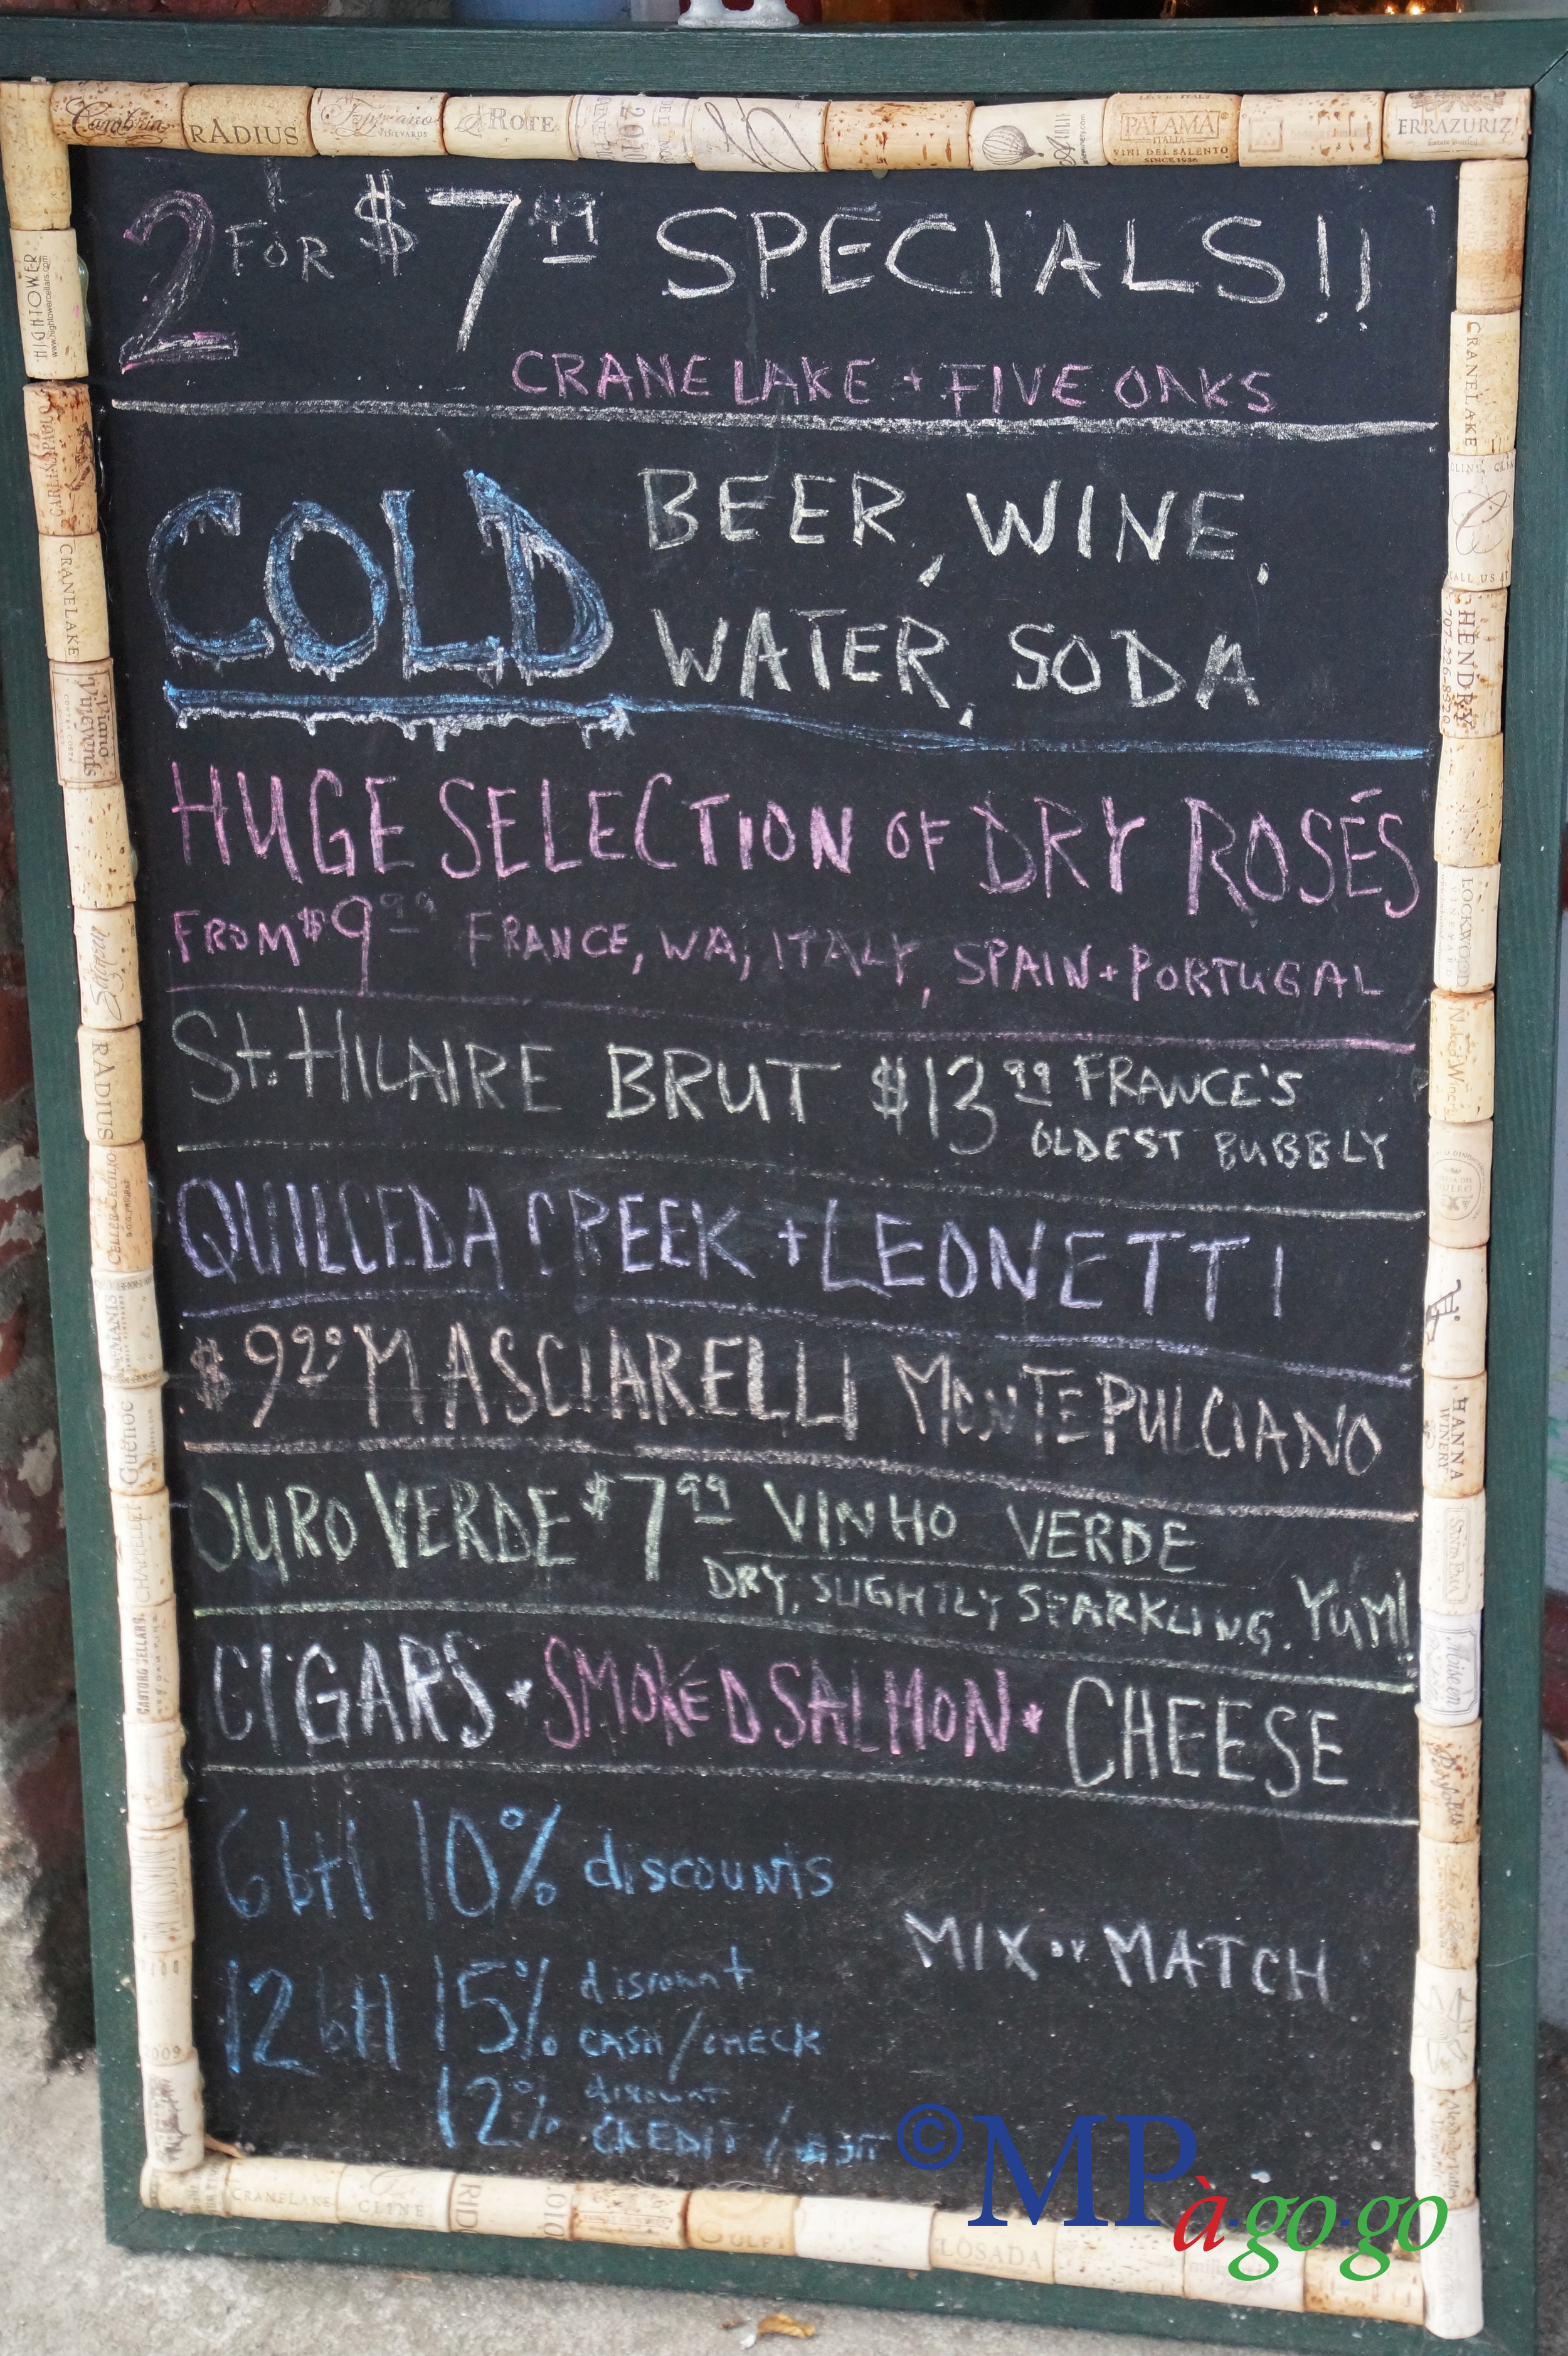 Cambria RADIUS ROTE 2010 PALAMA ITALIA VINI DEL SALENTO ERRAZURIZ
2 FOR $7.99 SPECIALS!!
CRANE LAKE + FIVE OAKS
COLD BEER, WINE,
WATER, SODA
HUGE SELECTION OF DRY ROSÉS
FROM $9.99 FRANCE, WA, ITALY, SPAIN + PORTUGAL
St. HILAIRE BRUT $13.99 FRANCE'S
OLDEST BUBBLY
QUILCEDA CREEK + LEONETTI
$9 MASCIARELLI MONTEPULCIANO
OURO VERDE $7.99 VINHO VERDE
DRY, SLIGHTLY SPARKLING. YUM!
CIGARS * SMOKED SALMON * CHEESE
6 btl 10% discounts
MIX or MATCH
12 btl 15% discount
CASH/CHECK
12% discount
CREDIT /
HIGHTOWER
www.hightowercellars.com
CRANELAKE
RADIUS
Guenoc
CHAPPELLET
2009
CRANELAKE
HENDRY
LOCKWOOD
HANNA
WINERY
CRANELAKE CLINE LOSADA
© MP à·go·go